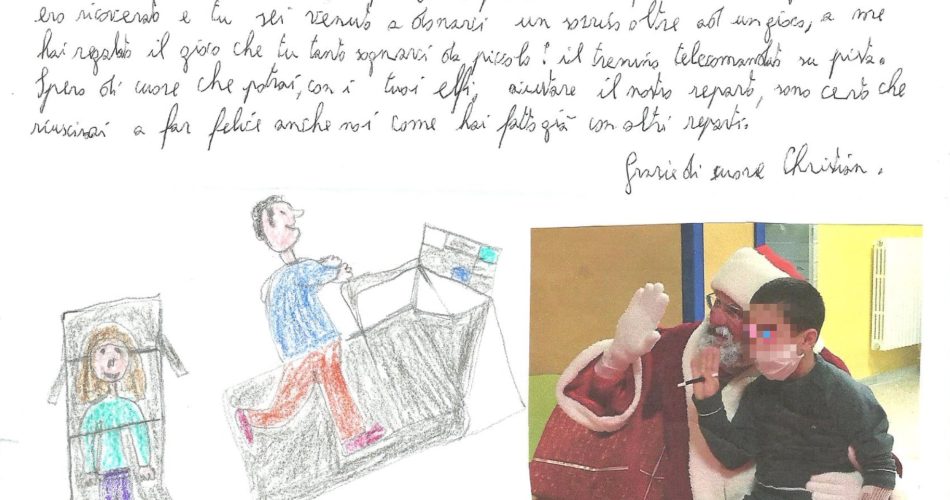 ero ricoverato e tu sei venuto a donarci un sorriso oltre ad un gioco, a me
hai regalato il gioco che tu tanto sognavi da piccolo! il trenino telecomandato su pista.
Spero di cuore che potrai, con i tuoi elfi, aiutare il nostro reparto, sono certo che
riuscirai a far felice anche noi come hai fatto già con altri reparti.
Grazie di cuore Christian.